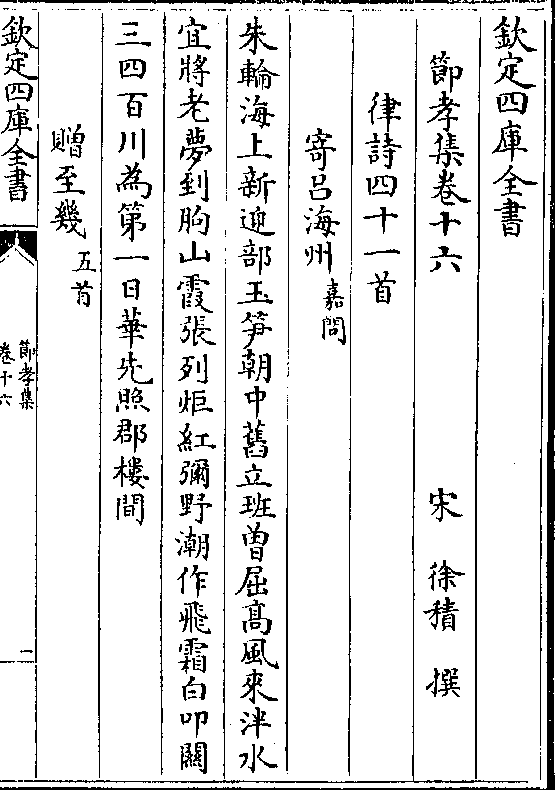 欽定四庫全書
節孝集卷十六
宋 徐積 撰
律詩四十一首
寄呂海州嘉問
朱輪海上新迎部玉笋朝中舊立班曽屈髙風來泮水
宜將老夢到朐山霞張列炬紅彌野潮作飛霜白叩關
三四百川為第一日華先照郡樓間
贈至幾五首
欽定四庫全書
節孝集
卷十六
一